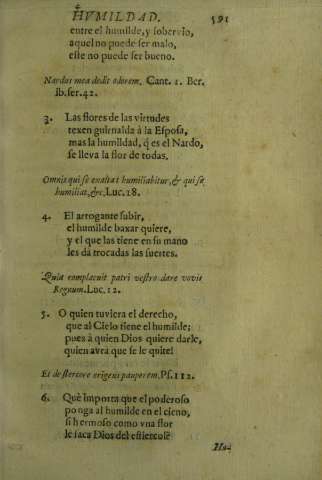 HVMILDAD. 591
entre el humilde, y sobervio,
aquel no puede ser malo,
este no puede ser bueno.
Nardus mea dedit odorem. Cant. 1. Ber.
Ib. ser. 42.
3. Las flores de las virtudes
texen guirnalda à la Esposa,
mas la humildad, q̃ es el Nardo,
se lleva la flor de todas.
Omnis qui se exaltat humiliabitur, & qui se
humiliat, &c. Luc. 18.
4. El arrogante subir,
el humilde baxar quiere,
y el que las tiene en su mano
les dà trocadas las suertes.
Quia complacuit patri vestro dare vovis
Regnum. Luc. 12.
5. O quien tuviera el derecho,
que al Cielo tiene el humilde;
pues à quien Dios quiere darle,
quien avrà que se le quite!
Et de stercore erigens pauperem. Ps. 112.
6. Què importa que el poderoso
ponga al humilde en el cieno,
si hermoso como vna flor
le saca Dios del estierculẽ
Hu-